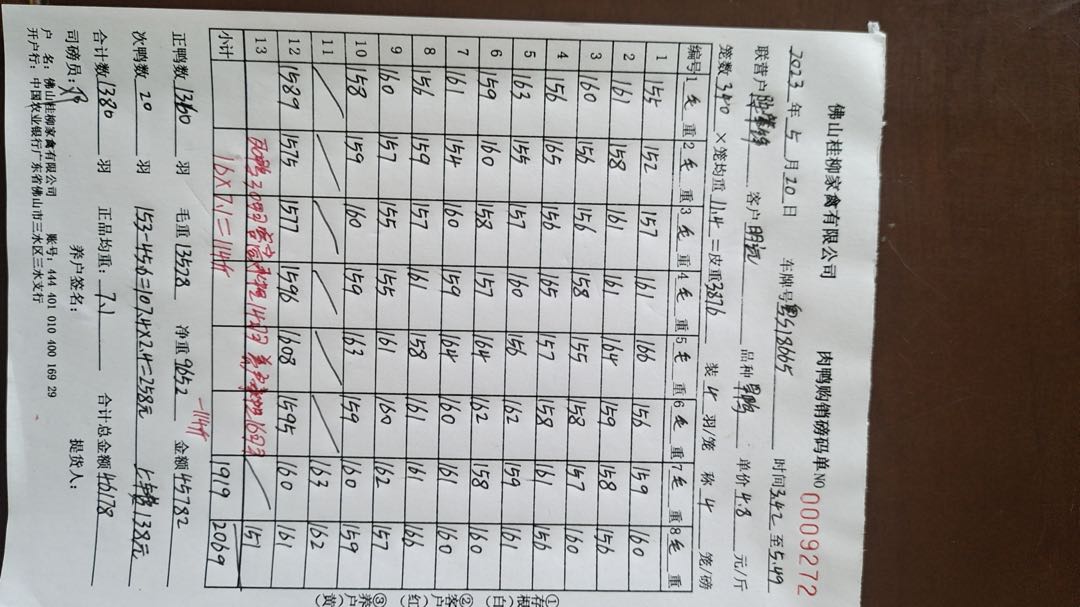 佛山桂柳家禽有限公司 肉鸭购销磅码单 NO 0009272
2023年5月20日 车牌号粤S18665 时间3.42至5.49
联营户 客户 明远 品种 单价4.8元/斤
笼数340×笼均重11.4=皮重3876 装4羽/笼 称4笼/磅
编号 1毛重 2毛重 3毛重 4毛重 5毛重 6毛重 7毛重 8毛重
1 155 152 157 161 166 156 159 160
2 161 158 161 161 164 159 158 156
3 160 156 156 158 155 158 157 160
4 156 165 156 165 157 158 161 156
5 163 155 157 160 156 162 159 161
6 159 160 158 157 164 162 158 160
7 161 154 160 159 164 160 161 160
8 156 159 157 161 158 161 161 166
9 160 157 155 155 161 160 162 157
10 158 159 160 159 163 159 160 159
11 163 162
12 1589 1575 1577 1596 1608 1595 160 161
13 151
小计 16×7.1=114斤 1919 2069
-114斤
正鸭数1360羽 毛重13528 净重9652 金额45782
次鸭数20羽 153-45.6=107.4×2.4=258元 138元
合计数1380羽 正品均重:7.1 合计总金额46178
司磅员: 养户签名: 提货人:
户 名:佛山桂柳家禽有限公司 账号:444 401 010 400 169 29
开户行:中国农业银行广东省佛山市三水区三水支行
①存根(白) ②客户(红) ③养户(黄)